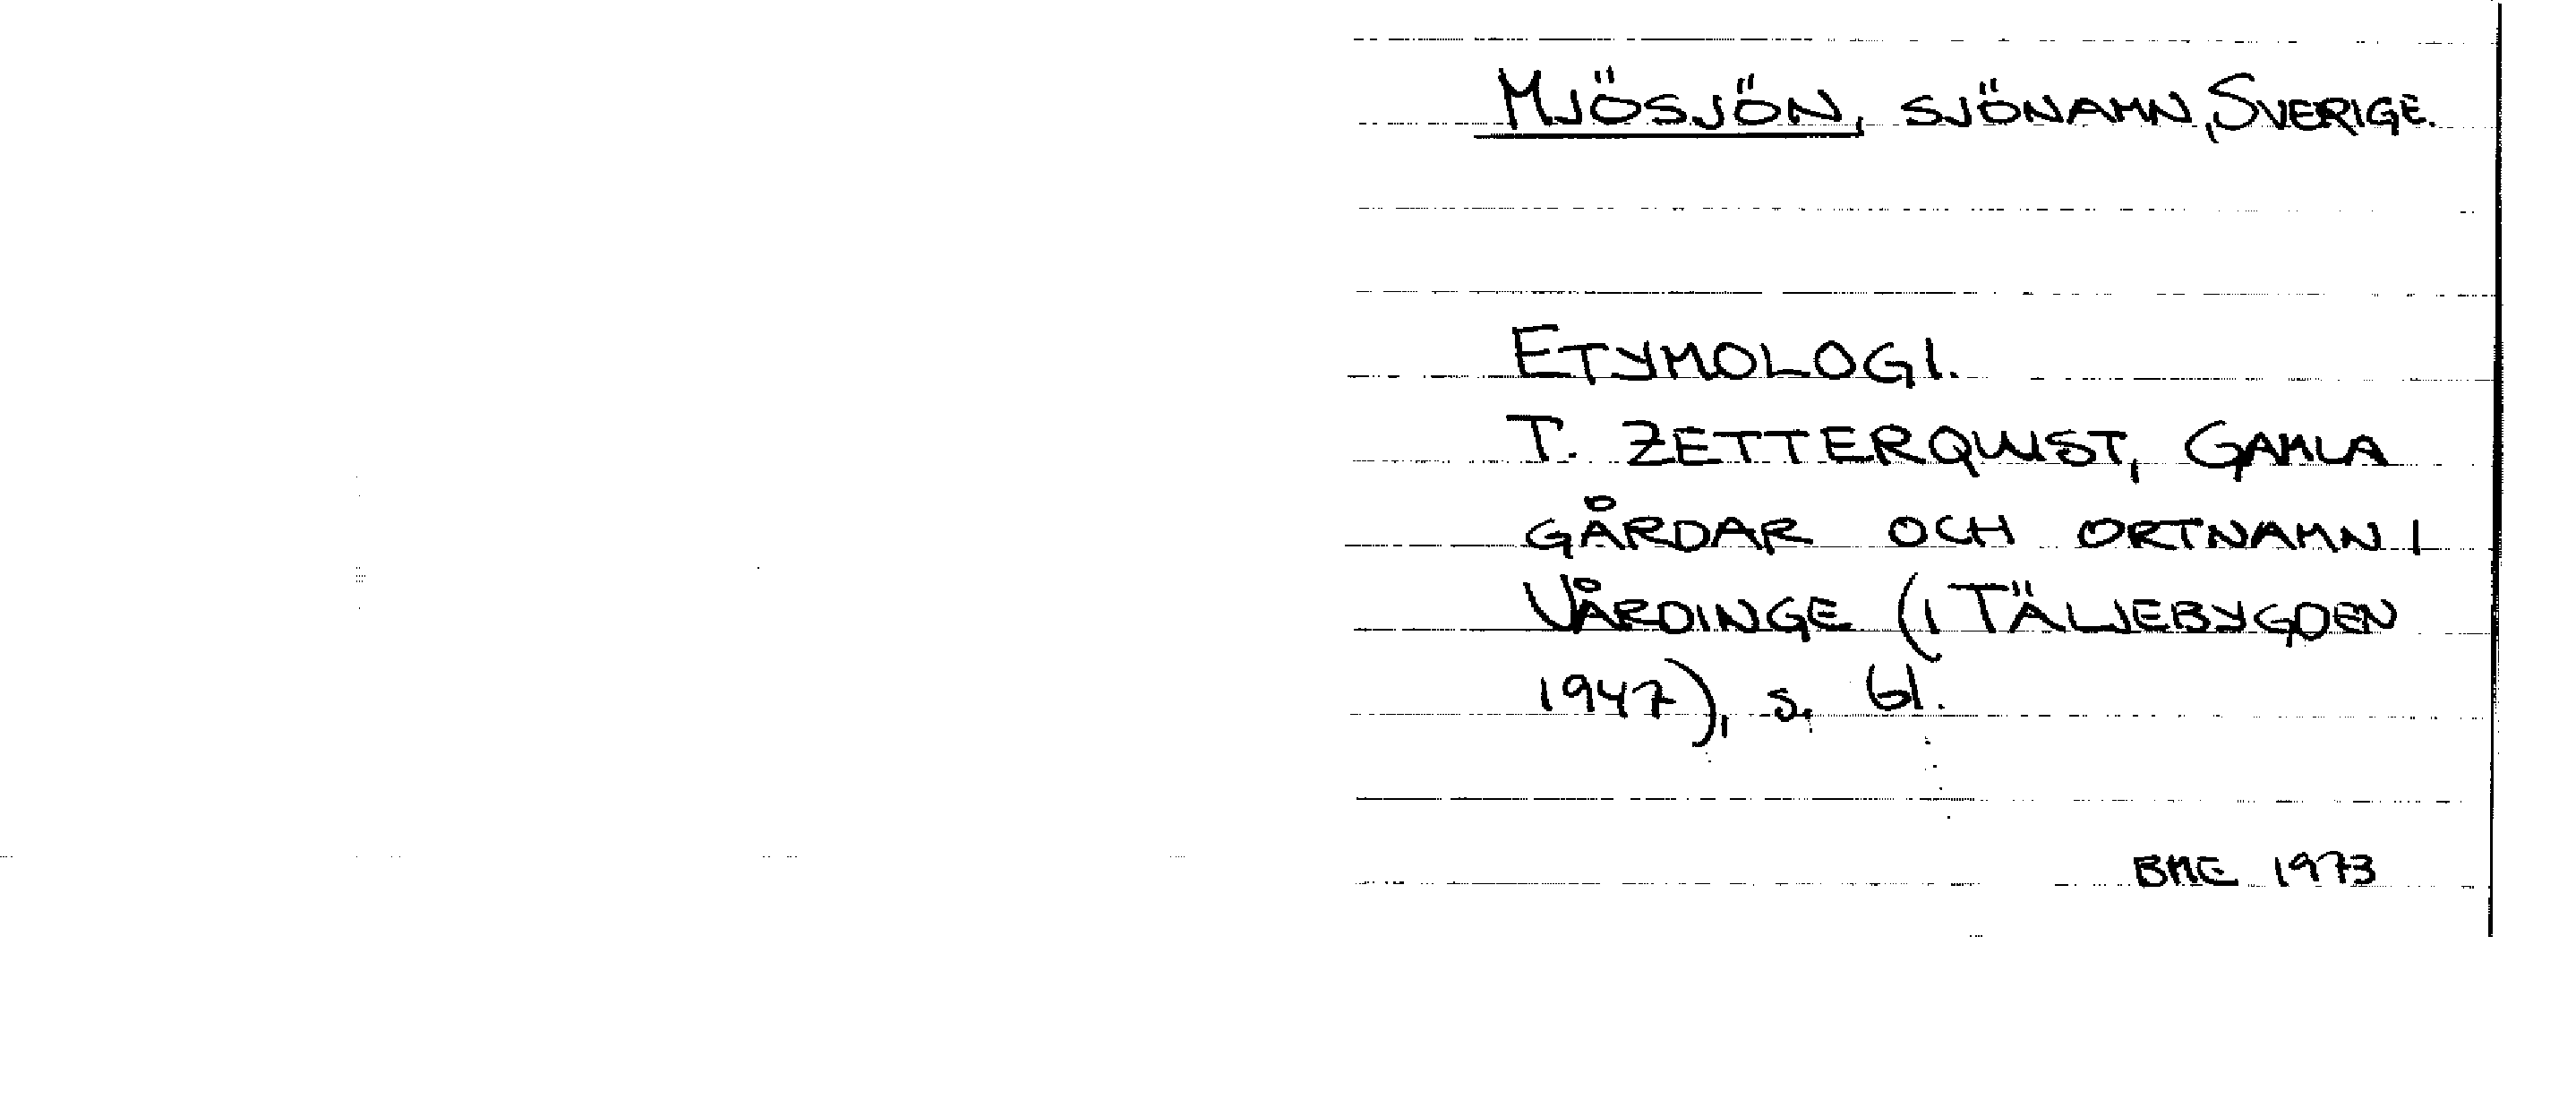 MJÖSJÖN, SJÖNAMN, SVERIGE.
ETYMOLOGI.
T. ZETTERQWIST, GAMLA
GÅRDAR OCH ORTNAMN I
VÅRDINGE (I TÄLJEBYGDEN
1947), s. 61.
BME 1973